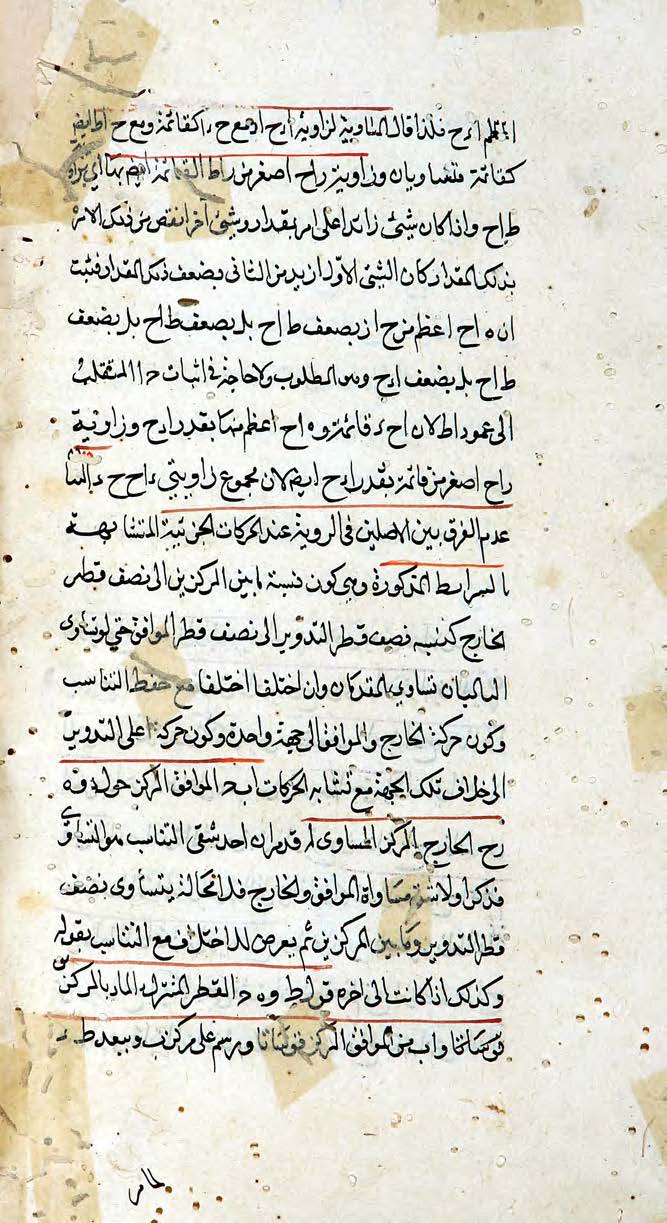 اعظم ا ء ح فلذا قال المساوية لزاوية ا ر ح اد مع ح ء ا كقائمة ومع ح ا ط ايض
كقائمة متساويان وزاوية ر ا ح اصغر من ر ا ط القائمة ايض بها اي بزاوية
ط ا ح واذا كان شيئ زائدا على امر بمقدار وشيئ آخر انقص من ذلك الامر
بذلك المقدار كان الشيئ الاول ازيد من الثاني بضعف ذلك المقدار فثبت
ان ه ا ح اعظم من ح ا ر بضعف ط ا ح بل بضعف ط ا ح بل بضعف
ط ا ح بل بضعف ا ر ح وهو المطلوب ولا حاجة في اثبات
الى عمود ا ط لان ا ح ء قائمة و ه ا ح اعظم منها بقدر ا ر ح وزاوية
ر ا ح اصغر من قائمة بقدر ا ر ح ايض لان مجموع زاويتي ء ا ح ح ء ا
عدم الفرق بين الاصلين في الروية عند الحركات الجزئية المتشابهة
بالشرائط المذكورة وهي كون نسبة ما بين المركزين الى نصف قطر
الخارج كنسبة نصف قطر التدوير الى نصف قطر الموافق حتى لو تساوى
التاليان تساوى المقدمان وان اختلفا اختلفا مع حفظ التناسب
وكون حركة الخارج والموافق الى جهة واحدة وكون حركة اعلى التدوير
الى خلاف تلك الجهة مع تشابه الحركات ا ب ح الموافق المركز حول د و ه
ر ح الخارج المركز المساوى له قد مر ان احد شقى التناسب هو التساوي
فذكر اولا مساواة الموافق والخارج فلا محالة يتساوى نصف
قطر التدوير وما بين المركزين ثم يعرض للاختلاف مع التناسب بقوله
وكذلك اذا كانت الى اخره قوله ط و ه د القطر المشترك المار بالمركزين
قوسا ما و ا ب من الموافق المركز قوسا ما ورسم على مركز ب وببعد ط ء